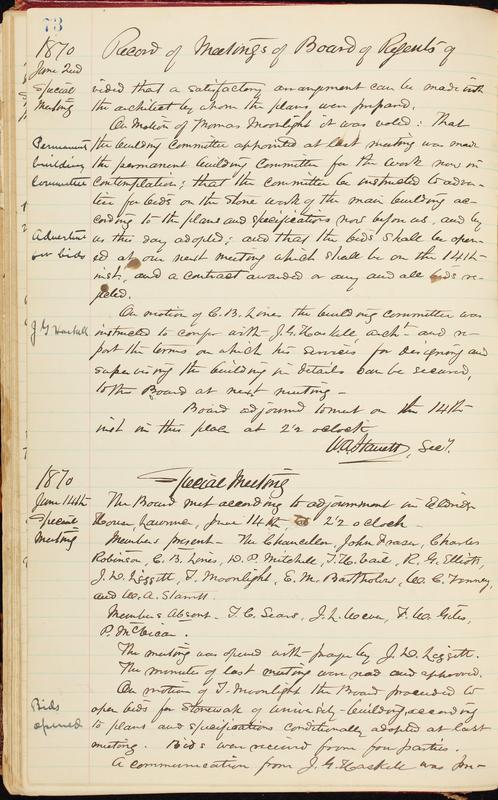 73
1870 Record of Meetings of Board of Regents of
June 2nd
Special
Meeting
vided that a satisfactory arrangement can be made with
the architect by whom the plans were prepared.
On Motion of Thomas Moonlight it was voted: That
Permanent
building
Committee
the building Committee appointed at last meeting was made
the permanent building Committee for the work now in
contemplation; that the committee be instructed to adver-
tise for bids on the stone work of the main building ac-
cording to the plans and specifications now before us, and by
Advertise
for bids
us this day adopted; and that the bids shall be open-
ed at our next meeting which shall be on the 14th
inst, and a contract awarded or any and all bids re-
jected.
On motion of C. B. Lines the building committee was
J G Haskell
instructed to confer with J. G. Haskell, archt. and re-
port the terms on which his services for designing and
supervising the building in details can be secured,
to this Board at next meeting -
Board adjourned to meet on the 14th
inst in this place at 2 o'clock,
W. A. Starrett, Secy.
1870 Special Meeting
June 14th
Special
Meeting
The Board met according to adjournment in Eldridge
House, Lawrence, June 14th, at 2 o'clock -
Members present - The Chancellor, John Fraser, Charles
Robinson, C. B. Lines, D. P. Mitchell, T. H. Vail, R. G. Elliott,
J. D. Liggett, T. Moonlight, E. M. Bartholow, W. C. Tenney,
and W. A. Starrett.
Members Absent - T. C. Sears, J. L. Wever, F. W. Giles,
P. McVicar.
The meeting was opened with prayer by J. D. Liggett.
The minutes of last meeting were read and approved.
On motion of T. Moonlight the Board proceeded to
Bids
opened
open bids for stonework of University building according
to plans and specifications conditionally adopted at last
meeting. Bids were received from four parties.
A communication from J. G. Haskell was pre-